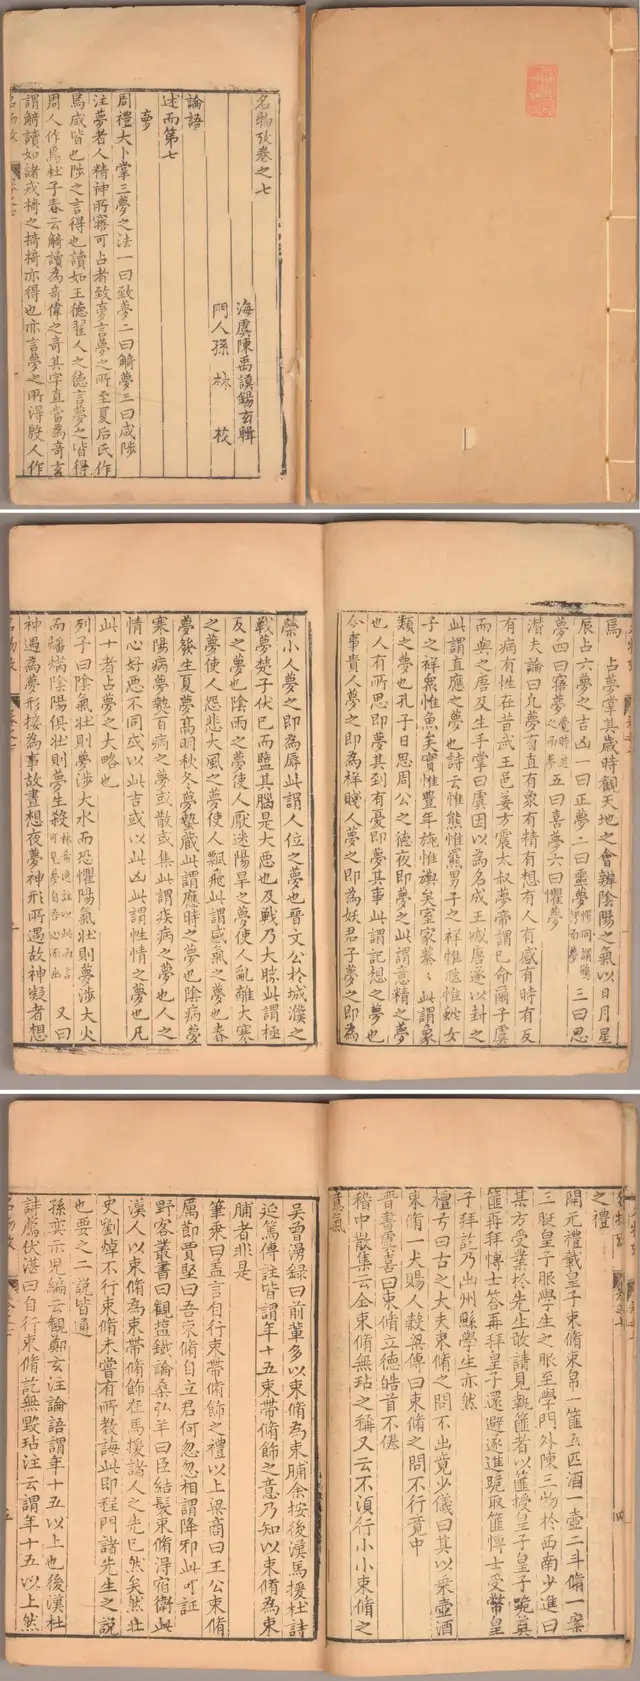 名物攷卷之七
海虞陳禹謨錫玄輯
門人孫 林 校
論語
述而第七
夢
周禮大卜掌三夢之法一曰致夢二曰觭夢三曰咸陟
注夢者人精神所寤可占者致夢言夢之所至夏后氏作
焉咸皆也陟之言得也讀如王德翟人之德言夢之皆得
周人作焉杜子春云觭讀為奇偉之奇其字直當為奇玄
謂觭讀如諸戎掎之掎掎亦得也亦言夢之所得殷人作
焉 占夢掌其歲時觀天地之會辨陰陽之氣以日月星
辰占六夢之吉凶一曰正夢二曰噩夢 三曰思
夢四曰寤夢 五曰喜夢六曰懼夢
潛夫論曰凡夢有直有象有精有想有人有感有時有反
有病有性在昔武王邑姜方震太叔夢帝謂已命爾子虞
而與之唐及生手掌曰虞因以為名成王滅唐遂以封之
此謂直應之夢也詩云惟熊惟羆男子之祥惟虺惟蛇女
子之祥眾惟魚矣實惟豐年旐惟旟矣室家蓁蓁此謂象
類之夢也孔子日思周公之德夜即夢之此謂意精之夢
也人有所思即夢其到有憂即夢其事此謂記想之夢也
今事貴人夢之即為祥賤人夢之即為妖君子夢之即為
榮小人夢之即為辱此謂人位之夢也晉文公於城濮之
戰夢楚子伏已而盬其腦是大惡也及戰乃大勝此謂極
反之夢也陰雨之夢使人厭迷陽旱之夢使人亂離大寒
之夢使人怨悲大風之夢使人飄飛此謂感氣之夢也春
夢發生夏夢高明秋冬夢蟄藏此謂應時之夢也陰病夢
寒陽病夢熱百病之夢或散或集此謂疾病之夢也人之
情心好惡不同或以此吉或以此凶此謂性情之夢也凡
此十者占夢之大略也
列子曰陰氣壯則夢涉大水而恐懼陽氣壯則夢涉大火
而燔焫陰陽俱壯則夢生殺 又曰
神遇為夢形接為事故晝想夜夢神形所遇故神凝者想
之禮
開元禮載皇子束脩束帛一篚五匹酒一壺二斗脩一案
三脡皇子服學生之服至學門外陳三物於西南少進曰
某方受業於先生敢請見執篚者以篚授皇子皇子跪奠
篚再拜博士答再拜皇子還避遂進跪取篚博士受幣皇
子拜訖乃出州縣學生亦然
檀弓曰古之大夫束脩之問不出竟少儀曰其以乘壺酒
束脩一犬賜人穀梁傳曰束脩之問不行竟中
晉書虞喜曰束脩立德皓首不倦
稽中散集云全束脩無玷之稱又云不湏行小小束脩之
意氣
吳曾漫錄曰前輩多以束脩為束脯余按後漢馬援杜詩
延篤傳註皆謂年十五束帶脩飾之意乃知以束脩為束
脯者非是
筆乘曰蓋言自行束帶脩飾之禮以上梁商曰王公束脩
厲節賈堅曰吾束脩自立君何忽忽相謂降邪此可証
野客叢書曰觀鹽鐵論桑弘羊曰臣結髮束脩得宿衛此
漢人以束脩為束帶脩飾在馬援諸人之先已然矣然北
史劉焯不行束脩未嘗有所教誨此即程門諸先生之說
也要之二說皆通
孫奕示兒編云觀鄭玄注論語謂年十五以上也後漢杜
詩薦伏湛曰自行束脩訖無毀玷注云謂年十五以上然